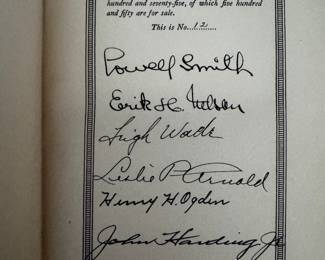 hundred and seventy-five, of which five hundred
and fifty are for sale.
This is No. 12
Lowell Smith
Erik H. Nelson
Leigh Wade
Leslie P. Arnold
Henry H. Ogden
John Harding Jr